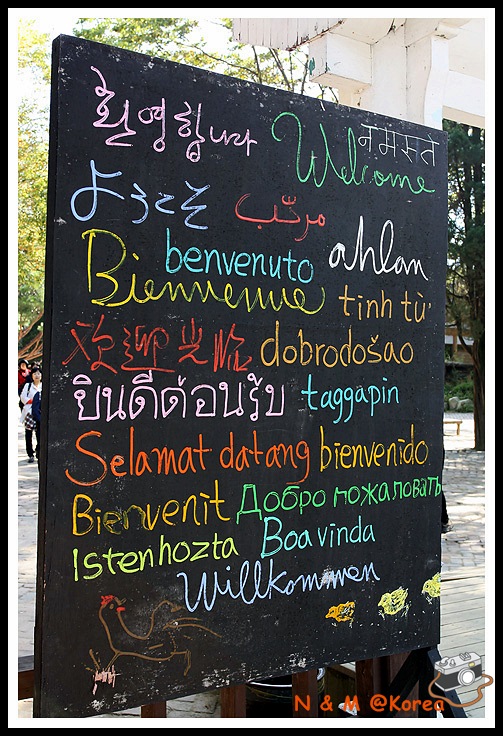 환영합니다
Welcome नमस्ते
ようこそ مرحّب
benvenuto ahlan
Bienvenue tinh từ
欢迎光临 dobrodošao
ยินดีต้อนรับ taggapin
Selamat datang bienvenido
Bienvenit Добро пожаловать
Istenhozta Boa vinda
Willkommen
N & M @Korea